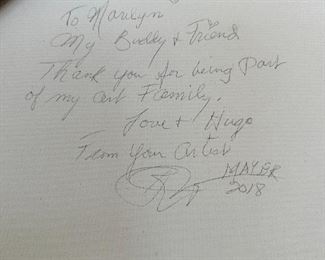 To Marilyn
My Buddy & Friend
Thank you for being Part
of my art Family.
Love + Hugs
From Your Artist
MAYER
2018